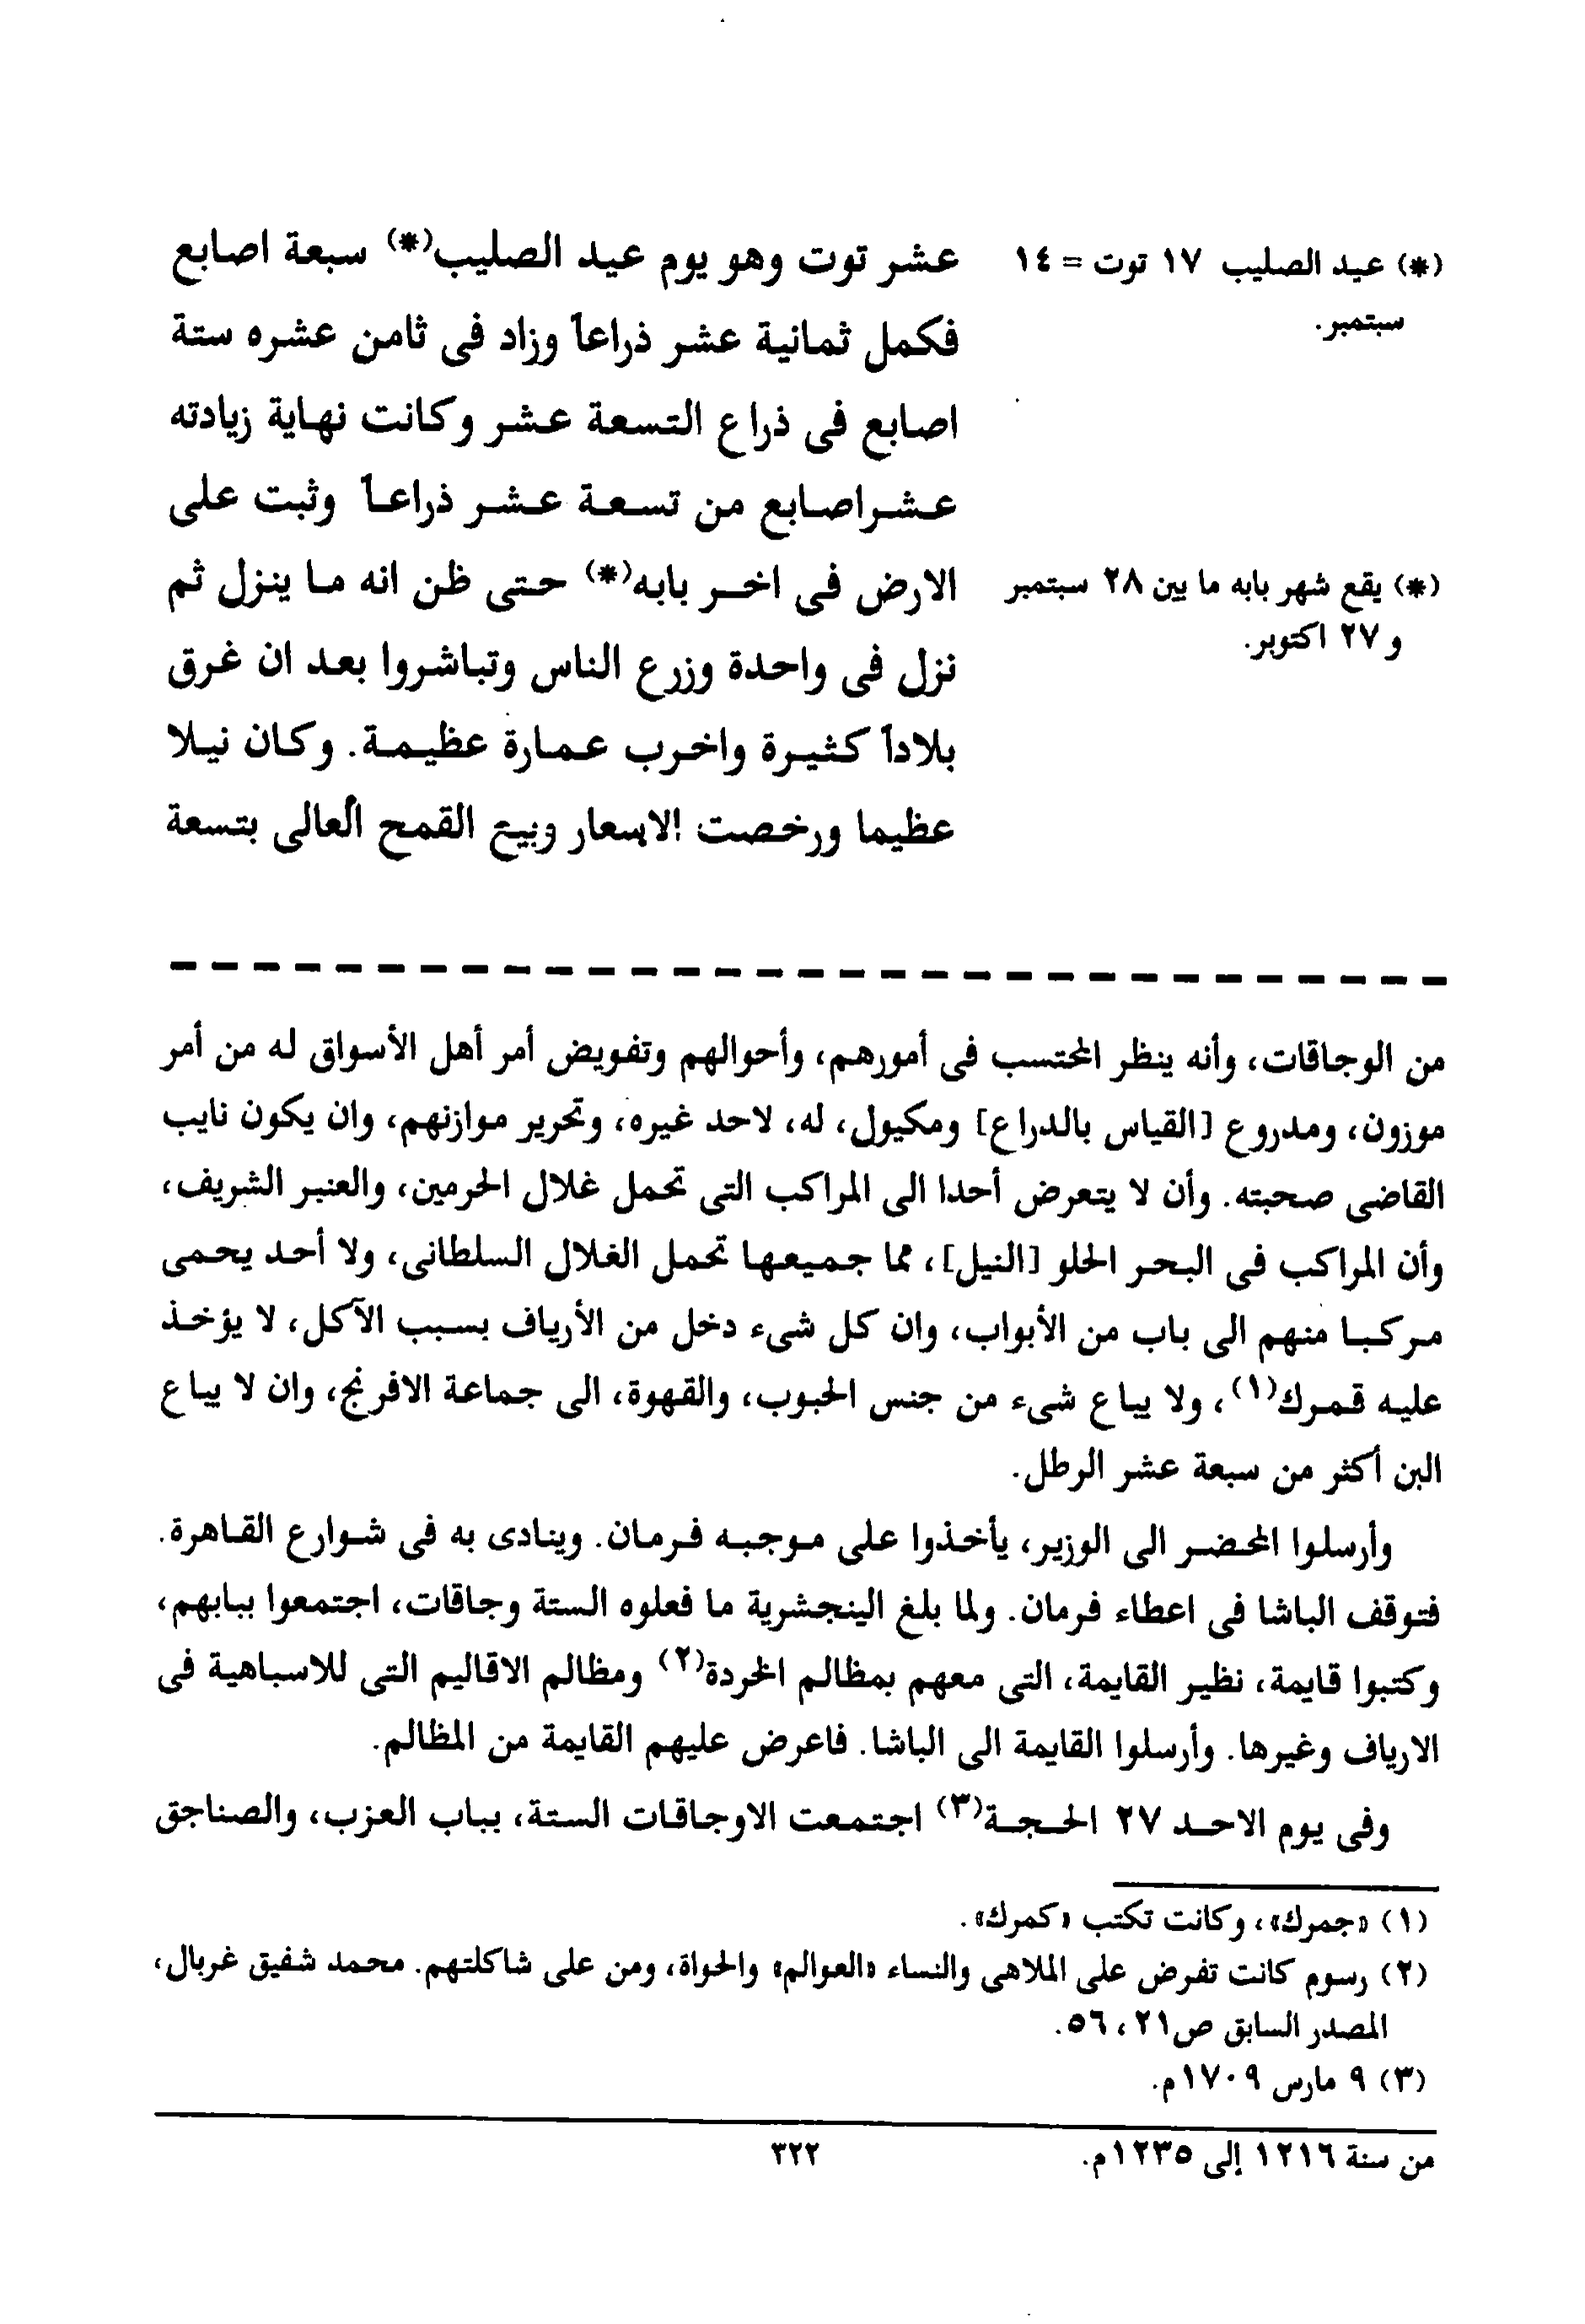 (*) عيد الصليب ١٧ توت = ١٤
سبتمبر.
عشر توت وهو يوم عيد الصليب(*) سبعة اصابع
فكمل ثمانية عشر ذراعاً وزاد فى ثامن عشره ستة
اصابع فى ذراع التسعة عشر وكانت نهاية زيادته
عشراصابع من تسعة عشر ذراعاً وثبت على
(*) يقع شهر بابه ما بين ٢٨ سبتمبر
و٢٧ اكتوبر.
الارض فى اخر بابه(*) حتى ظن انه ما ينزل ثم
نزل فى واحدة وزرع الناس وتباشروا بعد ان غرق
بلاداً كثيرة واخرب عمارة عظيمة. وكان نيلا
عظيما ورخصت الاسعار وبيع القمح العالى بتسعة
من الوجاقات، وأنه ينظر المحتسب فى أمورهم، وأحوالهم وتفويض أمر أهل الأسواق له من أمر
موزون، ومدروع [القياس بالدراع] ومكيول، له، لاحد غيره، وتحرير موازنهم، وان يكون نايب
القاضى صحبته. وأن لا يتعرض أحدا الى المراكب التى تحمل غلال الحرمين، والعنبر الشريف،
وأن المراكب فى البحر الحلو [النيل]، مما جميعها تحمل الغلال السلطانى، ولا أحد يحمى
مركبا منهم الى باب من الأبواب، وان كل شىء دخل من الأرياف بسبب الآكل، لا يؤخذ
عليه قمرك(١)، ولا يباع شىء من جنس الحبوب، والقهوة، الى جماعة الافرنج، وان لا يباع
البن أكثر من سبعة عشر الرطل.
وأرسلوا المحضر الى الوزير، يأخذوا على موجبه فرمان. وينادى به فى شوارع القاهرة.
فتوقف الباشا فى اعطاء فرمان. ولما بلغ الينجشرية ما فعلوه الستة وجاقات، اجتمعوا ببابهم،
وكتبوا قايمة، نظير القايمة، التى معهم بمظالم الخردة(٢) ومظالم الاقاليم التى للاسباهية فى
الارياف وغيرها. وأرسلوا القايمة الى الباشا. فاعرض عليهم القايمة من المظالم.
وفى يوم الاحد ٢٧ الحجة(٣) اجتمعت الاوجاقات الستة، بباب العزب، والصناجق
(١) «جمرك»، وكانت تكتب «كمرك».
(٢) رسوم كانت تفرض على الملاهى والنساء «العوالم» والحواة، ومن على شاكلتهم. محمد شفيق غربال،
المصدر السابق ص٢١، ٥٦.
(٣) ٩ مارس ١٧٠٩م.
من سنة ١٢١٦ إلى ١٢٣٥م.
٣٢٢